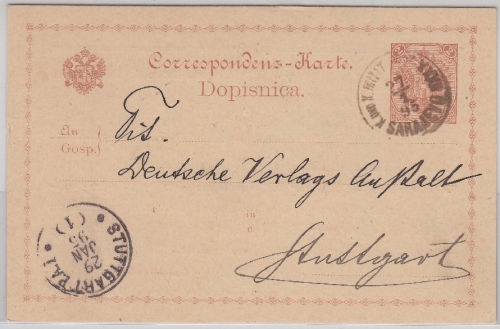 Correspondenz-Karte.
Dopisnica.
An
Gosp.
Tit.
Deutsche Verlags Anstalt
in
u
Stuttgart
SARAJEVO
95
STUTTGART P.A.I
29
JAN
95
(1)